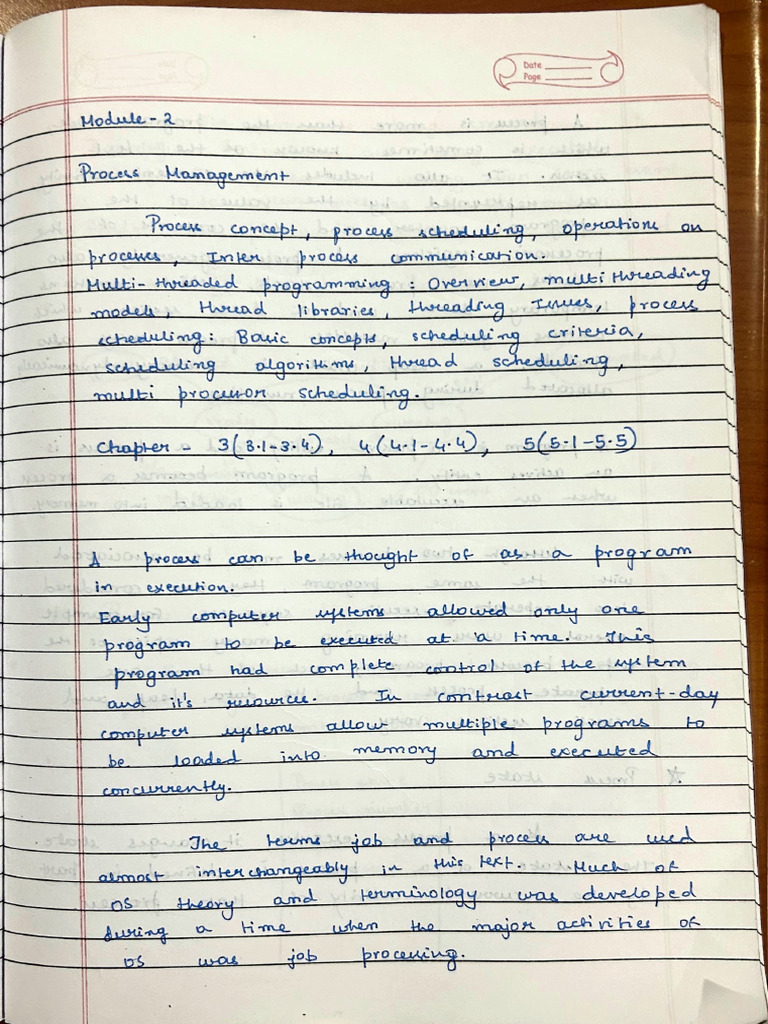 Date
Page
Module - 2
Process Management
Process concept, process scheduling, operations on
processes, Inter process communication.
Multi-threaded programming : Overview, multi threading
models, thread libraries, threading Issues, process
scheduling: Basic concepts, scheduling criteria,
scheduling algorithms, thread scheduling,
multi processor scheduling.
Chapter - 3(3.1-3.4), 4(4.1-4.4), 5(5.1-5.5)
A process can be thought of as a program
in execution.
Early computer systems allowed only one
program to be executed at a time. This
program had complete control of the system
and it's resources. In contrast current-day
computer systems allow multiple programs to
be loaded into memory and executed
concurrently.
The terms job and process are used
almost interchangeably in this text. Much of
OS theory and terminology was developed
during a time when the major activities of
OS was job processing.